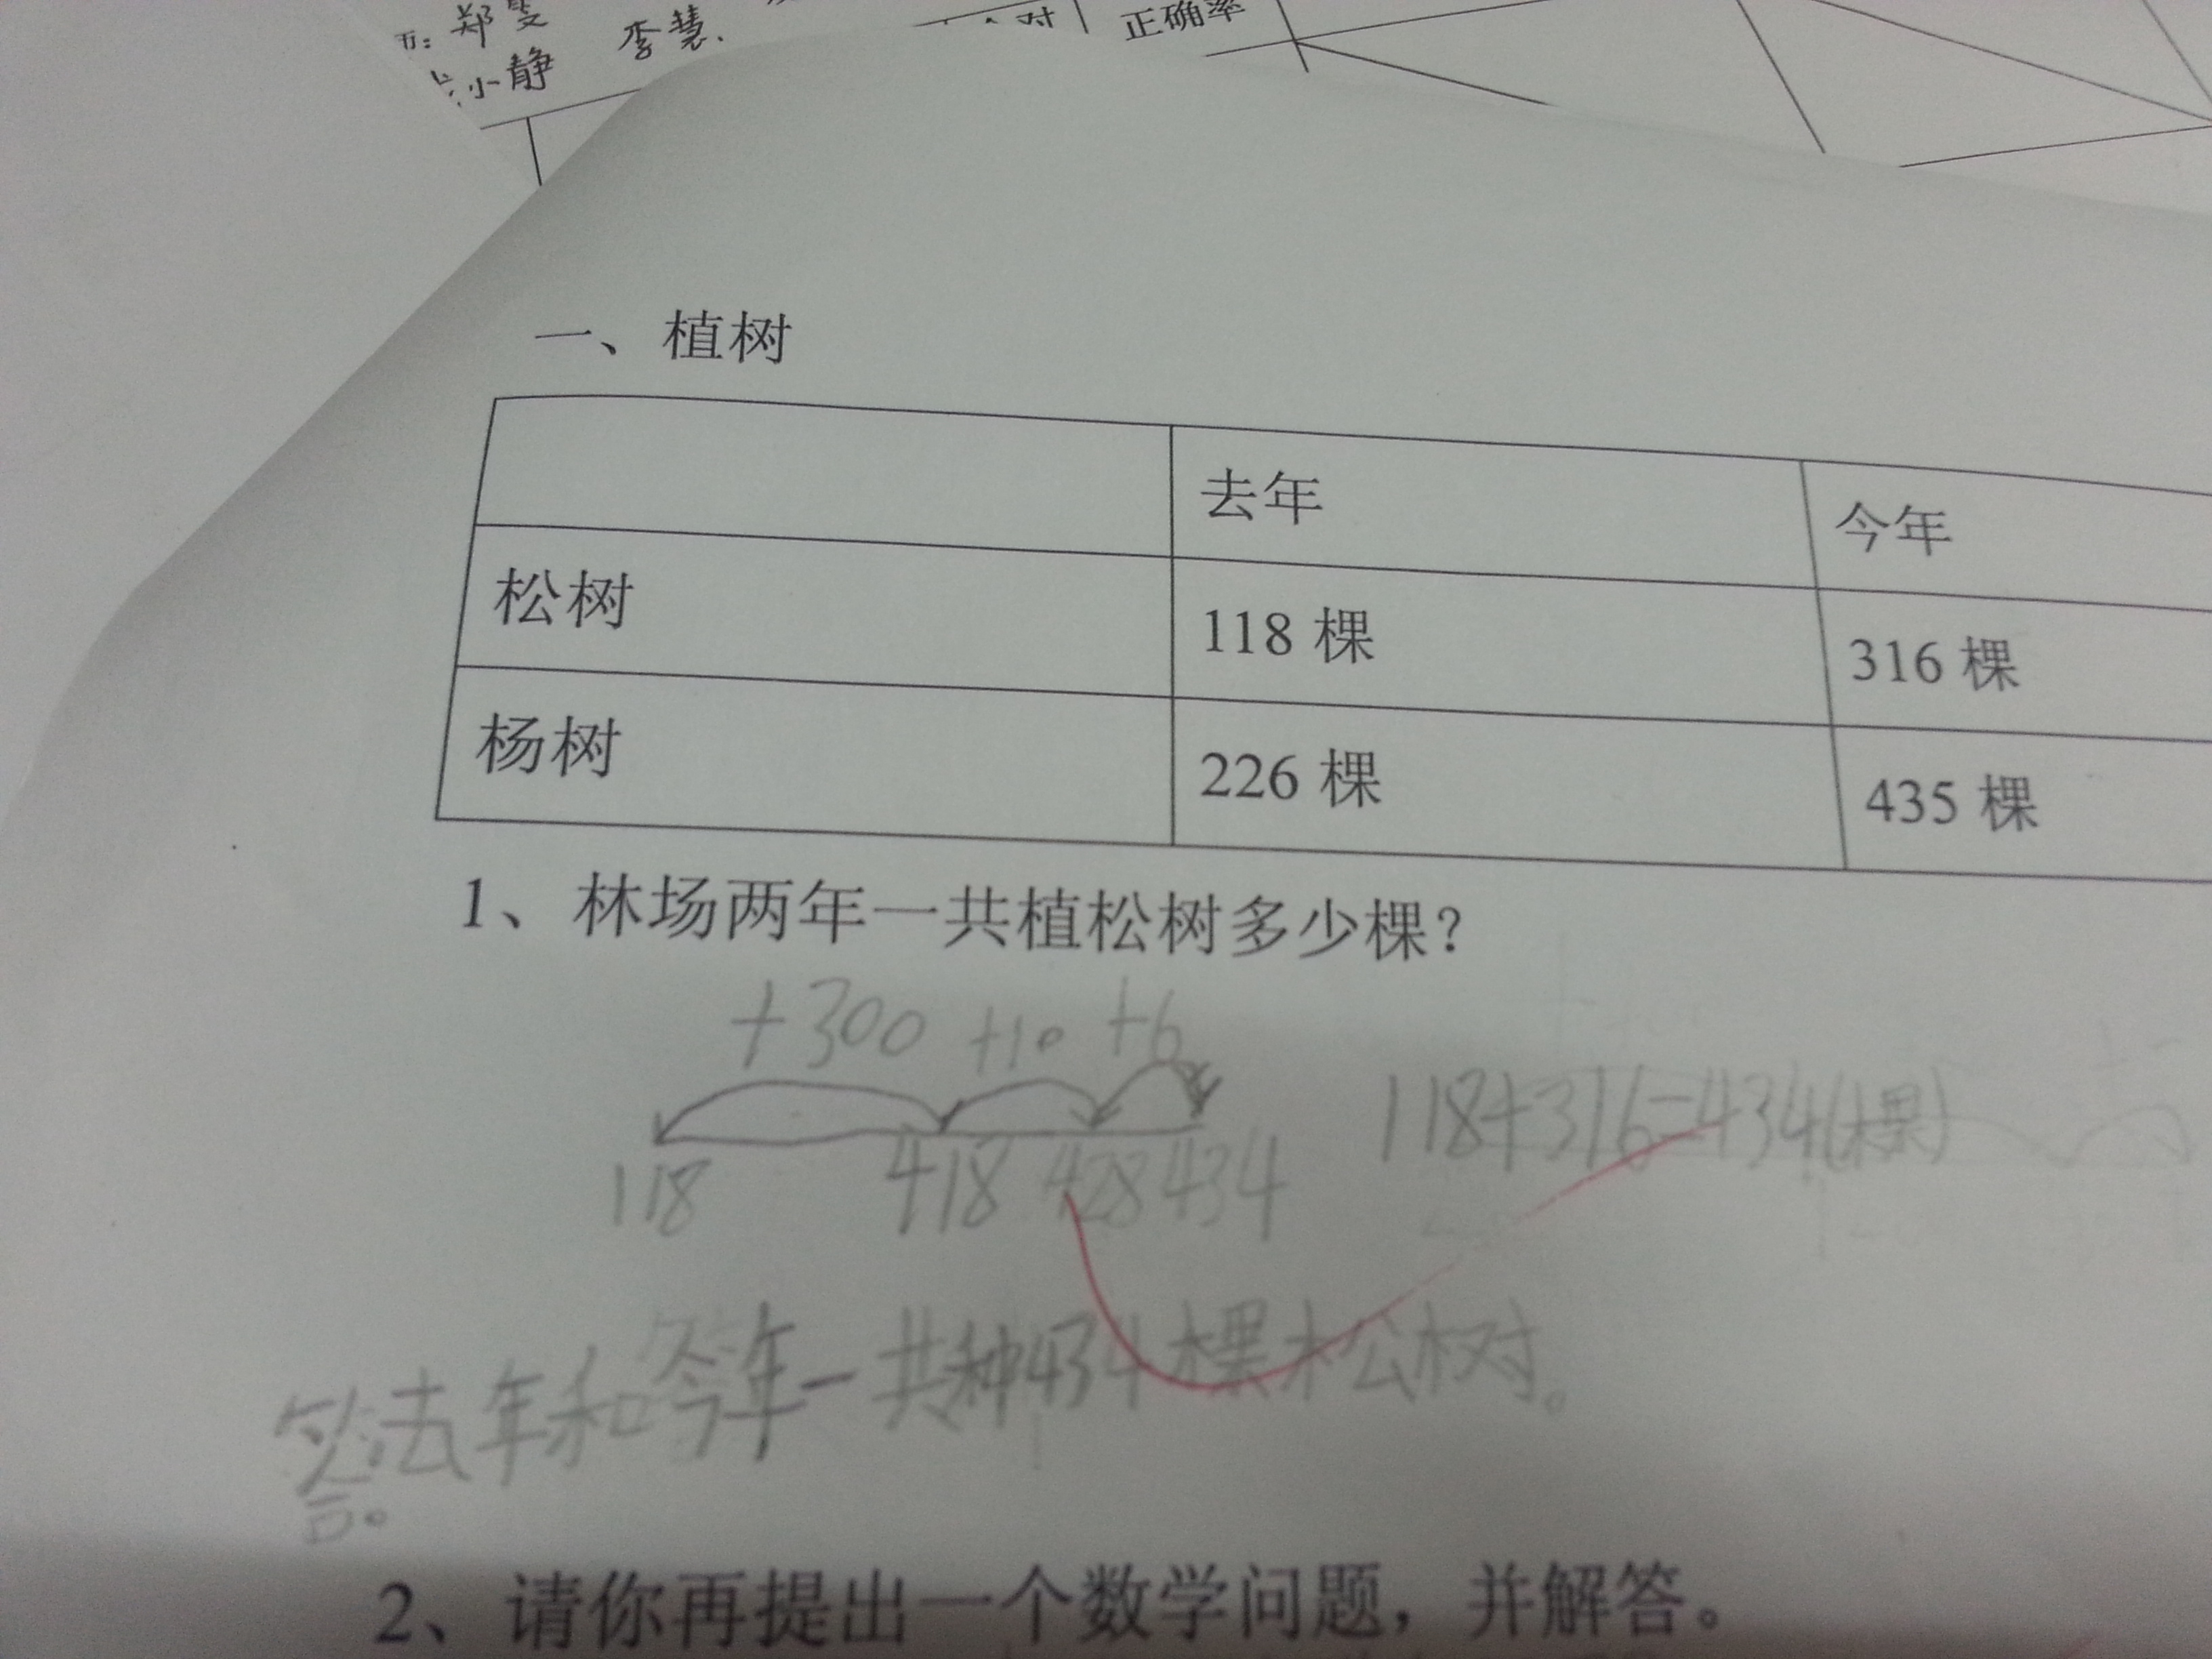 郑
小静 李慧.
对 正确率
一、植树
去年 今年
松树 118 棵 316 棵
杨树 226 棵 435 棵
1、林场两年一共植松树多少棵？
+300 +10 +6
118 418 428 434 118+316=434(棵)
答。去年和今年一共种434棵松树。
2、请你再提出一个数学问题，并解答。